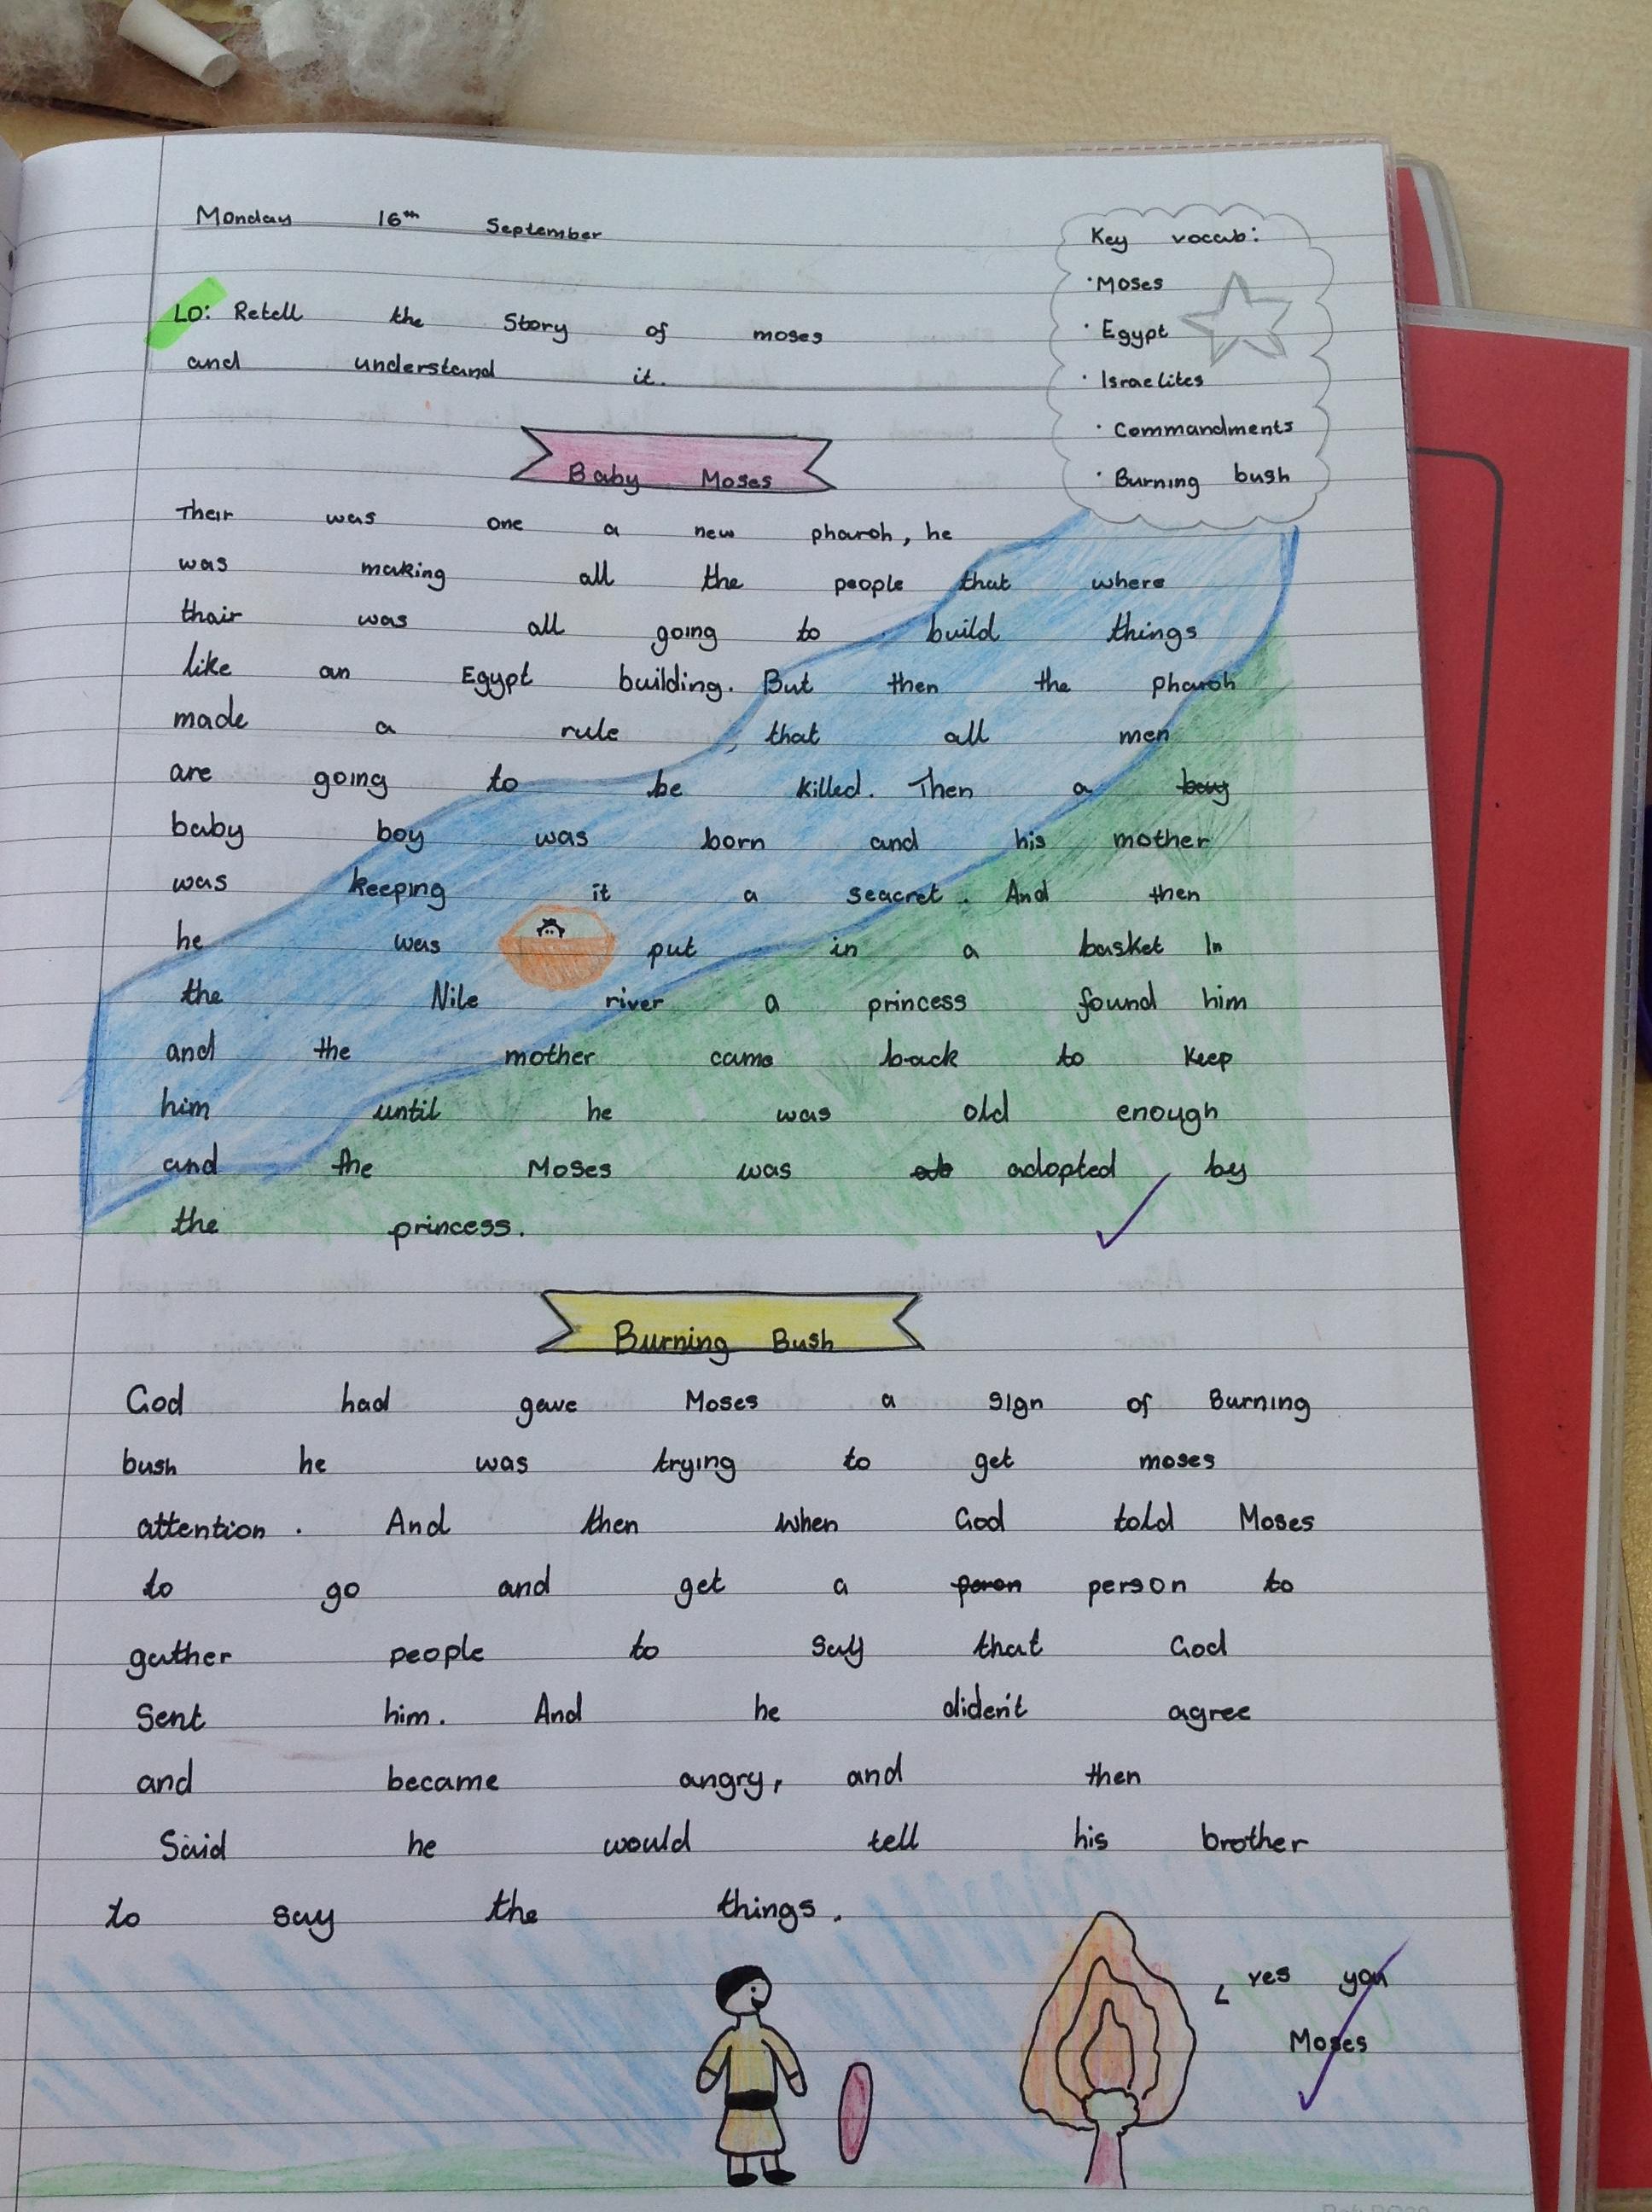 Monday 16th September
LO: Retell the Story of moses
and understand it.
Key vocab:
· Moses
· Egypt
· Israelites
· Commandments
· Burning bush
Baby Moses
Their was one a new pharoh, he
was making all the people that where
thair was all going to build things
like an Egypt building. But then the pharoh
made a rule, that all men
are going to be killed. Then a boy
baby boy was born and his mother
was keeping it a seacret. And then
he was put in a basket In
the Nile river a princess found him
and the mother came back to keep
him until he was old enough
and the Moses was adopted by
the princess.
Burning Bush
God had gave Moses a sign of Burning
bush he was trying to get moses
attention. And then when God told Moses
to go and get a peron person to
gather people to say that God
Sent him. And he diden't agree
and became angry, and then
Said he would tell his brother
to say the things.
yes you
Moses